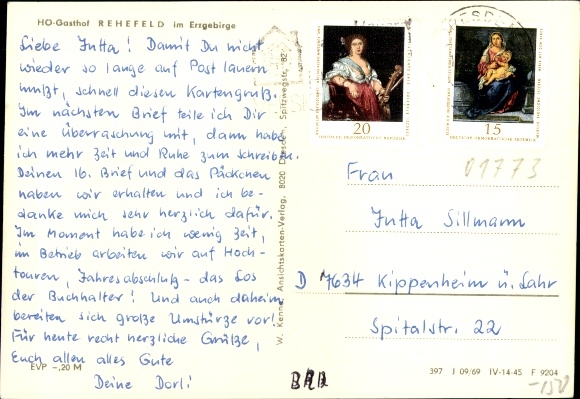 HO-Gasthof REHEFELD im Erzgebirge
Liebe Jutta! Damit Du nicht
wieder so lange auf Post lauern
mußt, schnell diesen Kartengruß.
Im nächsten Brief teile ich Dir
eine Überraschung mit, dann habe
ich mehr Zeit und Ruhe zum schreiben.
Deinen 16. Brief und das Päckchen
haben wir erhalten und ich be-
danke mich sehr herzlich dafür.
Im Moment habe ich wenig Zeit,
im Betrieb arbeiten wir auf Hoch-
touren, Jahresabschluß - das Los
der Buchhalter! Und auch daheim
bereiten sich große Umstürze vor!
Für heute recht herzliche Grüße,
Euch allen alles Gute
Deine Dorli
EVP -,20 M
W. Kenne, Ansichtskarten-Verlag, 8020 Dresden, Spitzwegstr. 82
20
15
01773
Frau
Jutta Sillmann
D 7634 Kippenheim ü. Lahr
Spitalstr. 22
BRD
397 J 09/69 IV-14-45 F 9204
-150